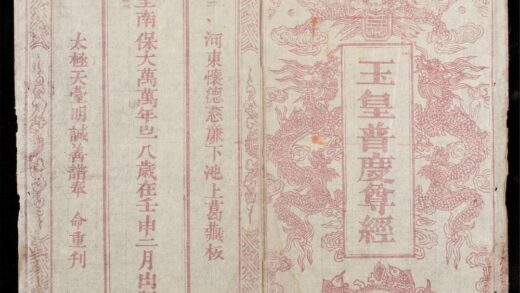 玉皇普慶尊經
河東懷德慈廉下池上葛藏板
南保大萬萬年㞢八歲在壬申二月
太極天臺明誠善譜奉 命重刊